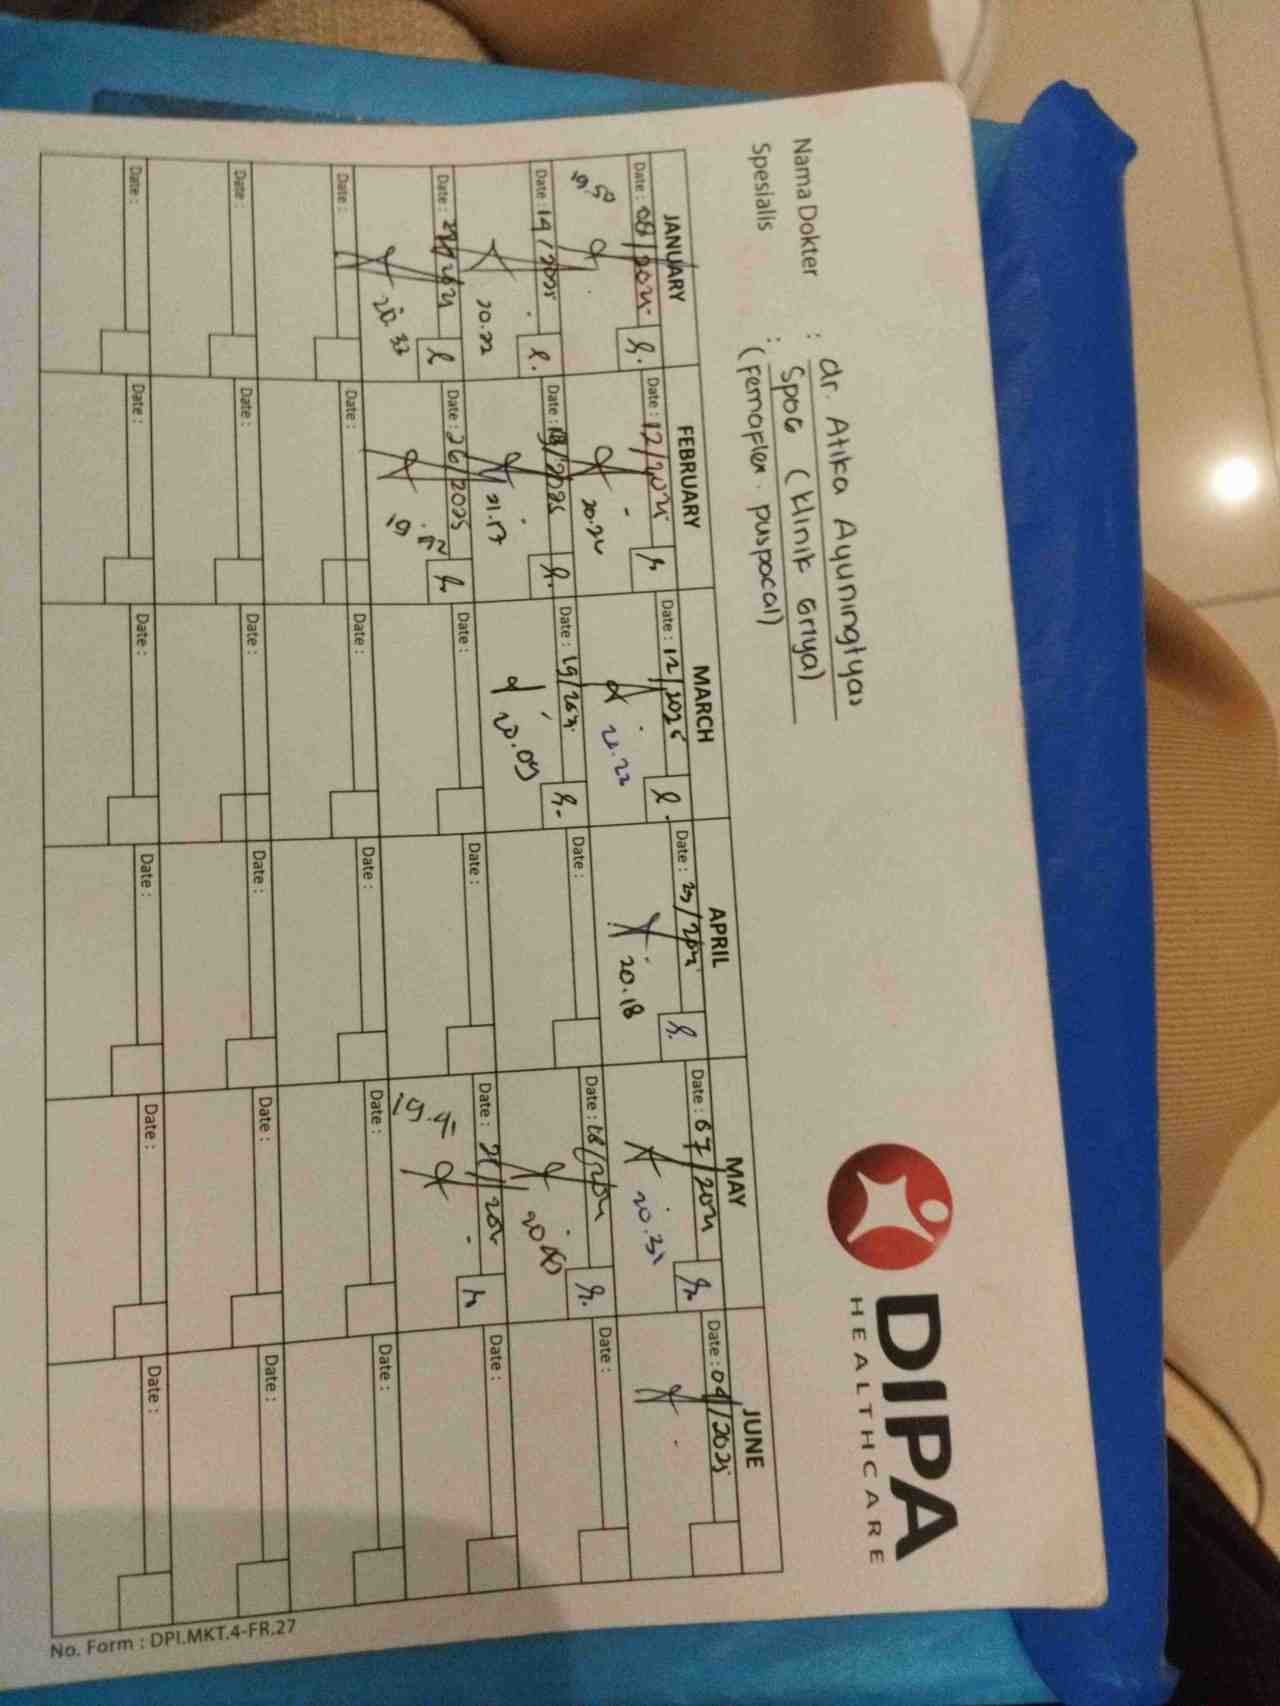 DIPA
HEALTHCARE
Nama Dokter : dr. Atika Ayuningtyas
Spesialis : SpoG (Klinik Griya)
(Femaflex. puspocal)
JANUARY FEBRUARY MARCH APRIL MAY JUNE
Date : 08/2025 Date : 12/2025 Date : 12/2025 Date : 23/2025 Date : 07/2025 Date : 04/2025
19.50 20.20 21.22 20.18 20.31
Date : 14/2025 Date : 18/2025 Date : 19/2025 Date : Date : 18/2025 Date :
20.22 21.17 20.09
Date : Date : 26/2025 Date : Date : Date : 21/2025 Date :
20.33
Date : Date : Date : Date : Date : Date :
Date : Date : Date : Date : Date : Date :
Date : Date : Date : Date : Date : Date :
No. Form : DPI.MKT.4-FR.27